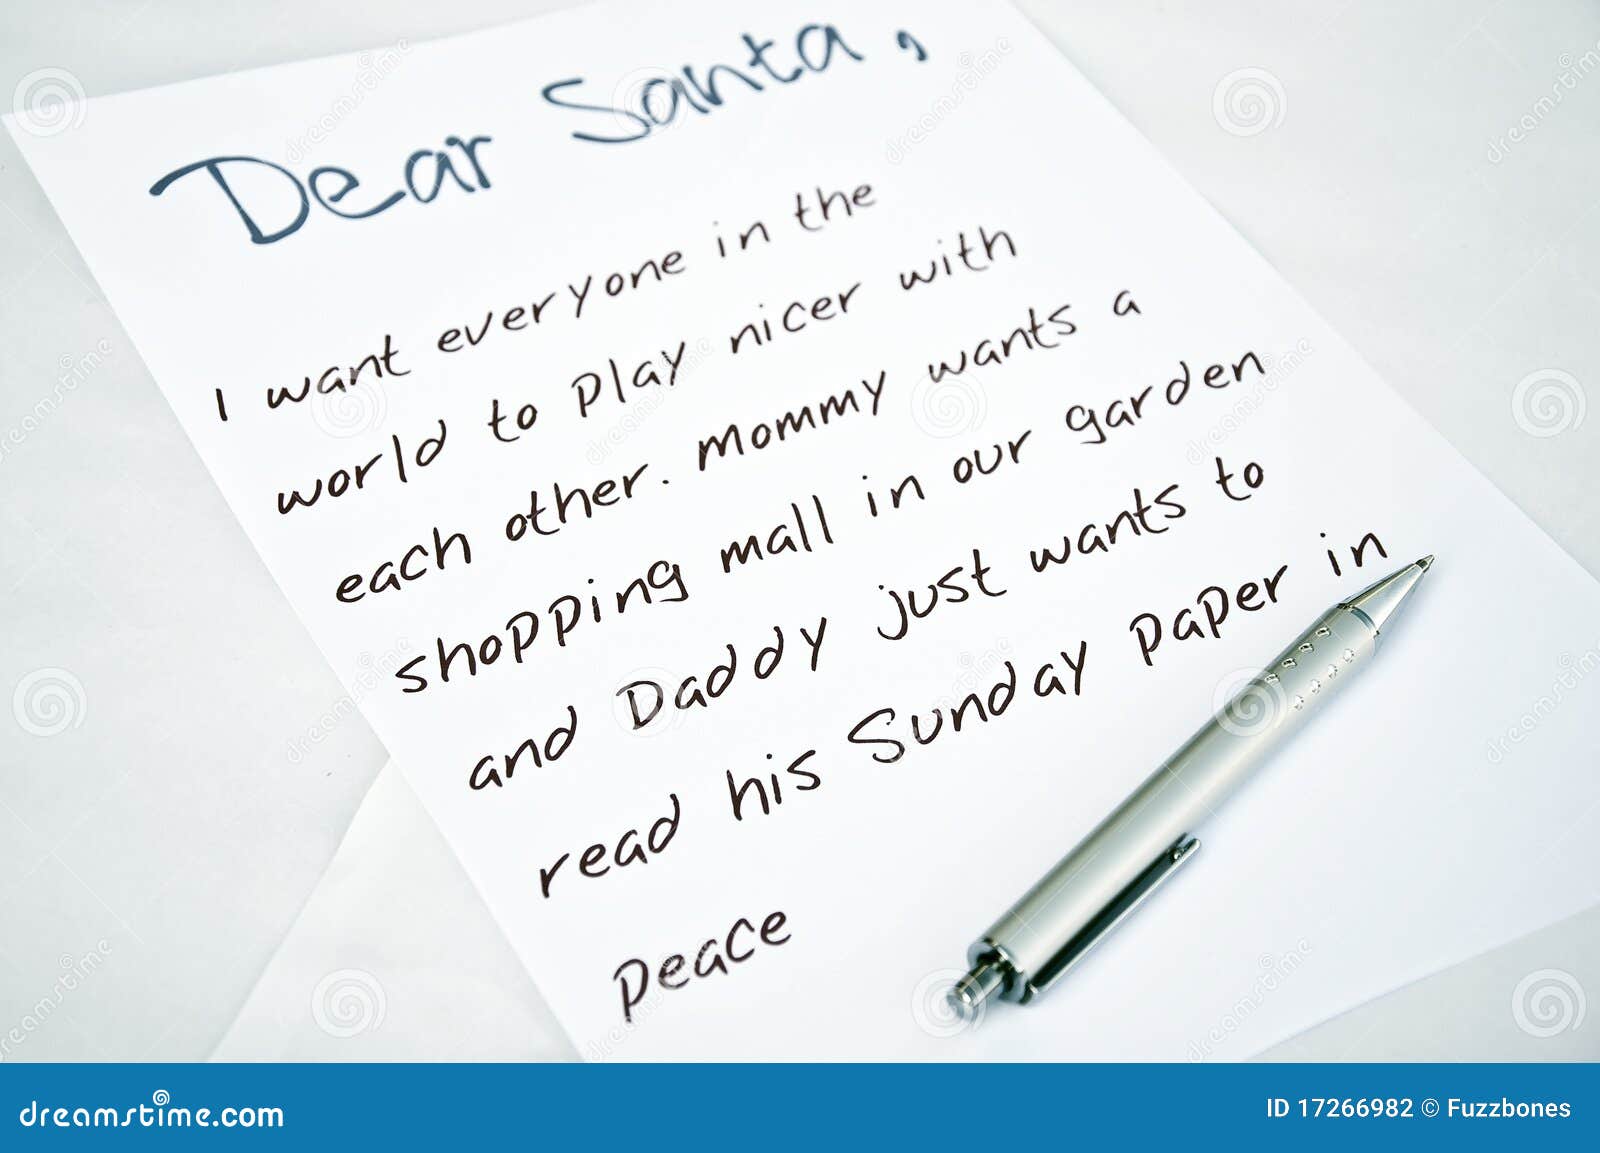 Dear Santa,
I want everyone in the
world to play nicer with
each other. Mommy wants a
shopping mall in our garden
and Daddy just wants to
read his Sunday paper in
peace
dreamstime.com
ID 17266982 © Fuzzbones